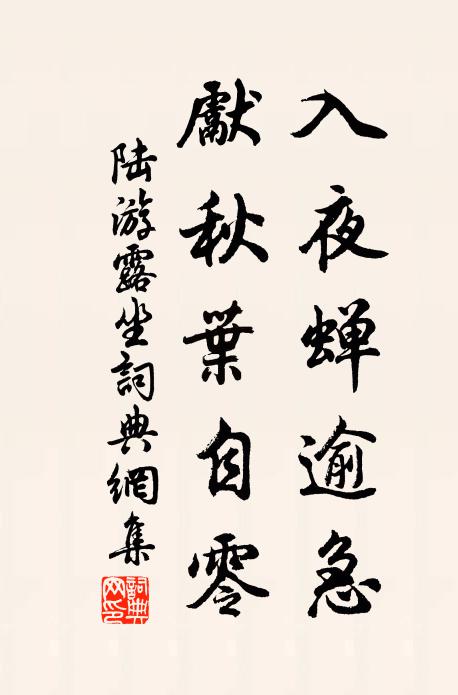 入夜蝉逾急
獻秋葉自零
陆游露坐詞典網集
詞典
网印